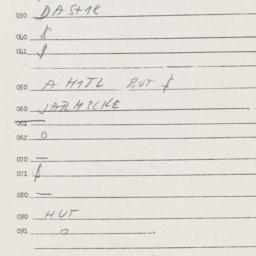 030 DASTIK
040 $
041 $
050 A HITL BUT $
060 JARMILKE
061
062 O
070 —
071 $
080 —
090 HUT
091 O